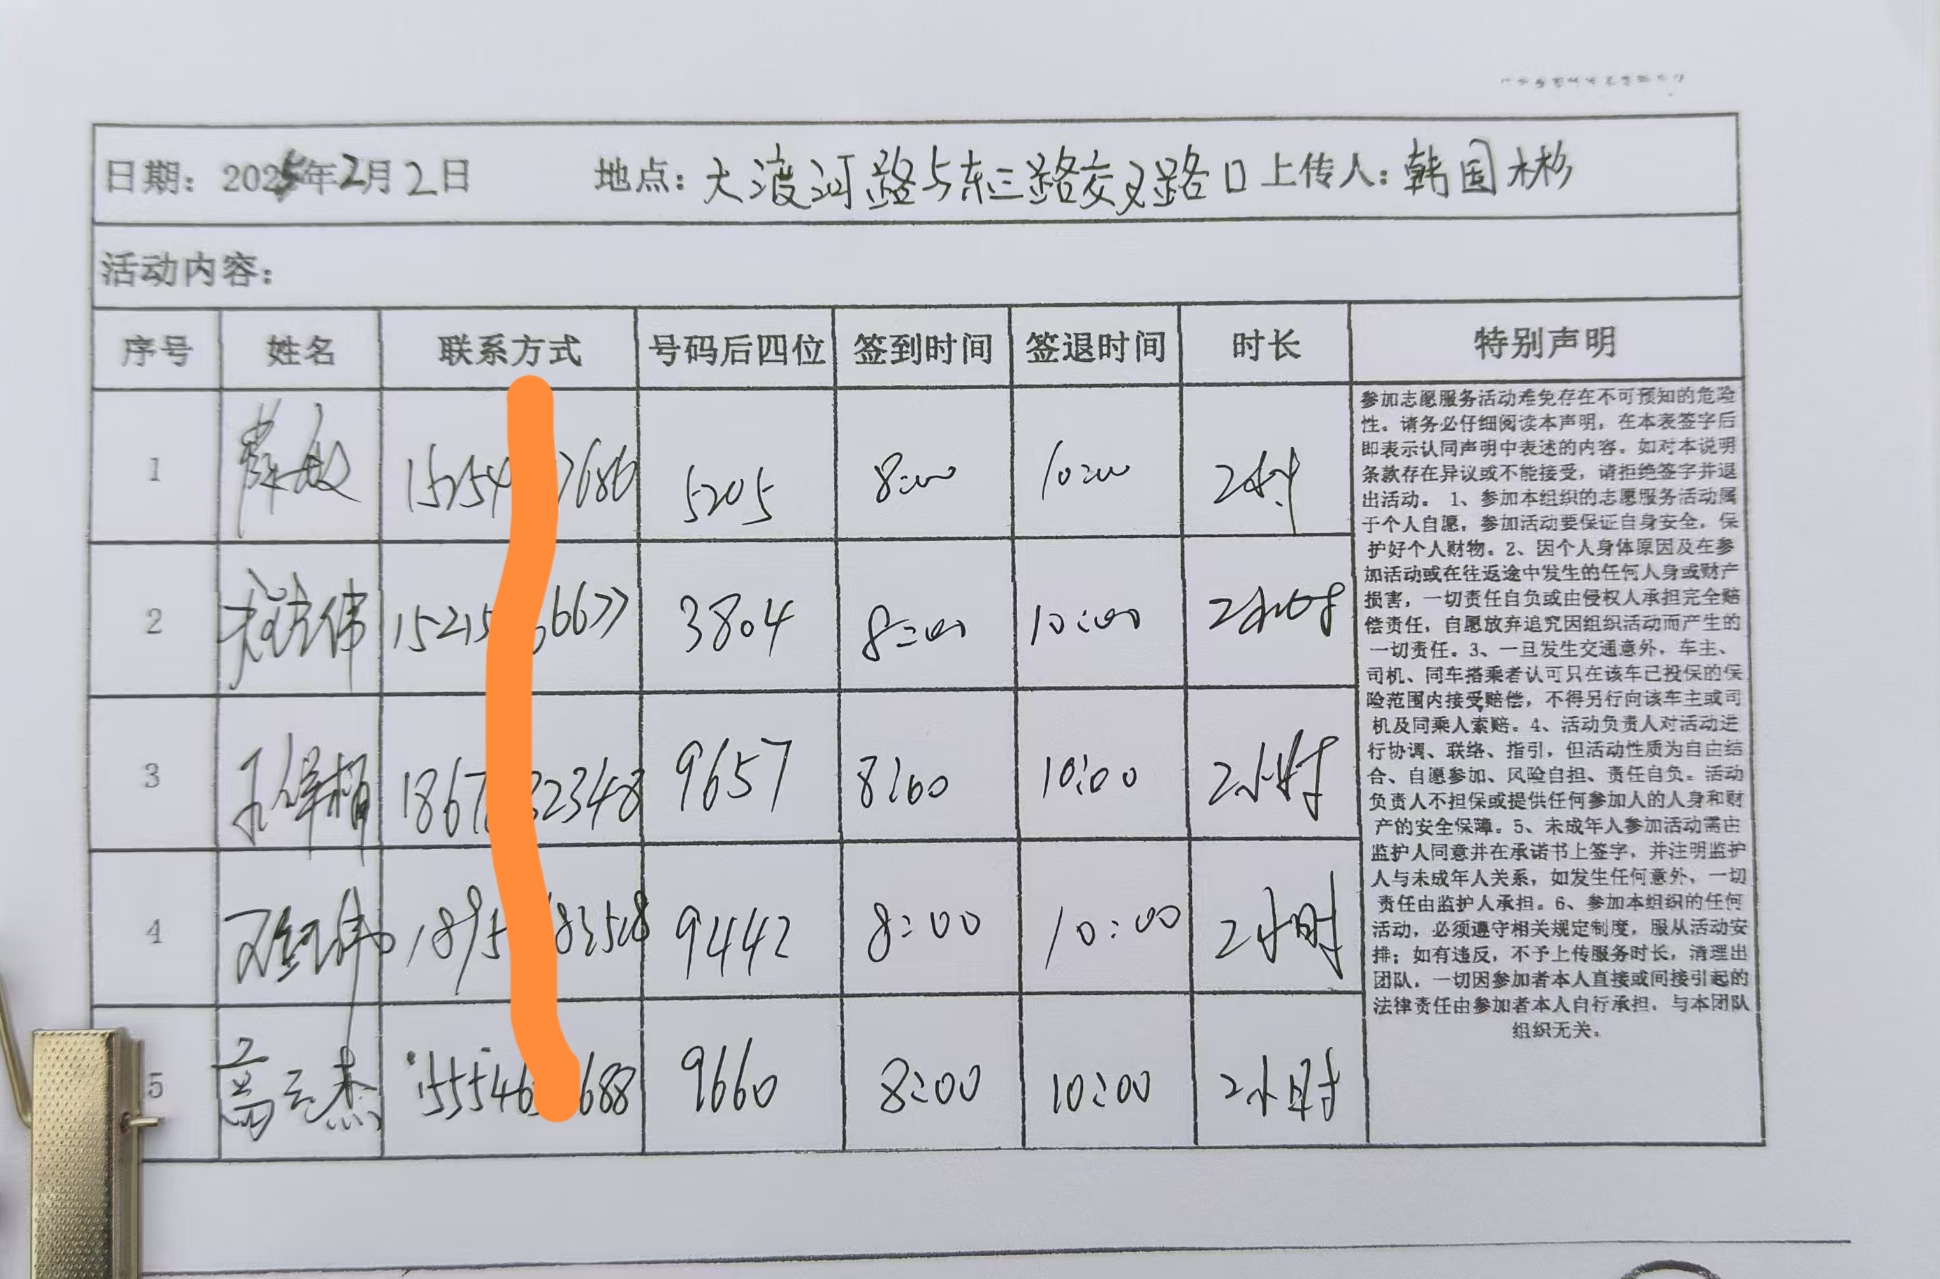 日期：2025年2月2日 地点：大渡河路与东三路交叉路口 上传人：韩国彬
活动内容：
序号 姓名 联系方式 号码后四位 签到时间 签退时间 时长 特别声明
1 5205 8:00 10:00 2小时
2 3804 8:00 10:00 2小时
3 9657 8:00 10:00 2小时
4 9442 8:00 10:00 2小时
5 9660 8:00 10:00 2小时
参加志愿服务活动难免存在不可预知的危险
性。请务必仔细阅读本声明，在本表签字后
即表示认同声明中表述的内容。如对本说明
条款存在异议或不能接受，请拒绝签字并退
出活动。 1、参加本组织的志愿服务活动属
于个人自愿，参加活动要保证自身安全，保
护好个人财物。2、因个人身体原因及在参
加活动或在往返途中发生的任何人身或财产
损害，一切责任自负或由侵权人承担完全赔
偿责任，自愿放弃追究因组织活动而产生的
一切责任。3、一旦发生交通意外，车主、
司机、同车搭乘者认可只在该车已投保的保
险范围内接受赔偿，不得另行向该车主或司
机及同乘人索赔。4、活动负责人对活动进
行协调、联络、指引，但活动性质为自由结
合、自愿参加、风险自担、责任自负。活动
负责人不担保或提供任何参加人的人身和财
产的安全保障。5、未成年人参加活动需由
监护人同意并在承诺书上签字，并注明监护
人与未成年人关系，如发生任何意外，一切
责任由监护人承担。6、参加本组织的任何
活动，必须遵守相关规定制度，服从活动安
排；如有违反，不予上传服务时长，清理出
团队，一切因参加者本人直接或间接引起的
法律责任由参加者本人自行承担，与本团队
组织无关。